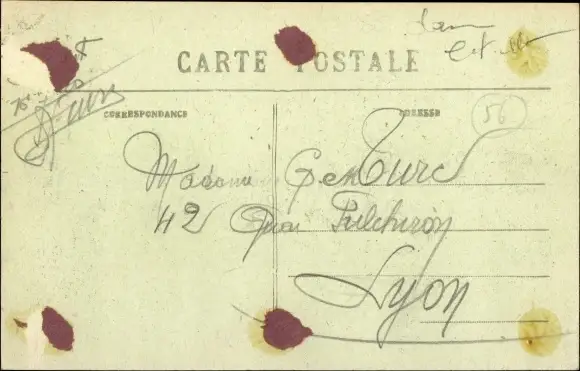 CARTE POSTALE
CORRESPONDANCE
ADRESSE
56
Madame Genturc
42 Quai Fulchiron
Lyon